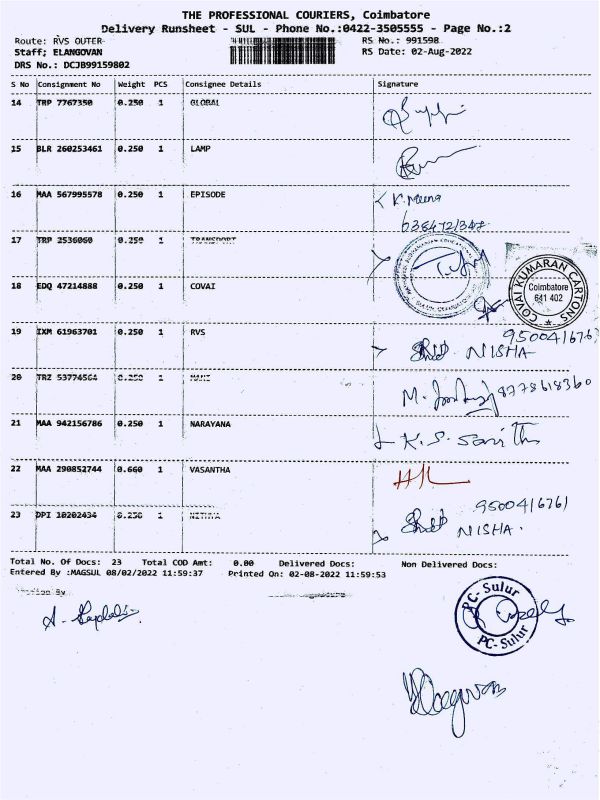 THE PROFESSIONAL COURIERS, Coimbatore
Delivery Runsheet - SUL - Phone No.:0422-3505555 - Page No.:2
Route: RVS OUTER
RS No.: 991598
Staff; ELANGOVAN
RS Date: 02-Aug-2022
DRS No.: DCJB99159802
S No Consignment No Weight PCS Consignee Details Signature
14 TRP 7767350 0.250 1 GLOBAL
15 BLR 260253461 0.250 1 LAMP
16 MAA 567995578 0.250 1 EPISODE K. Meena
17 TRP 2536060 0.250 1 TRANSPORT
18 EDQ 47214888 0.250 1 COVAI
COVAI KUMARAN CARTONS
Coimbatore
641 402
19 IXM 61963701 0.250 1 RVS NISHA
20 TRZ 53774564 0.250 1 MANI M. 8778618360
21 MAA 942156786 0.250 1 NARAYANA K. S.
22 MAA 290852744 0.660 1 VASANTHA
9500416761
23 DPI 10202434 0.250 1 NITHYA NISHA.
Total No. Of Docs: 23 Total COD Amt: 0.00 Delivered Docs: Non Delivered Docs:
Entered By :MAGSUL 08/02/2022 11:59:37 Printed On: 02-08-2022 11:59:53
PC-Sulur
PC-Sulur